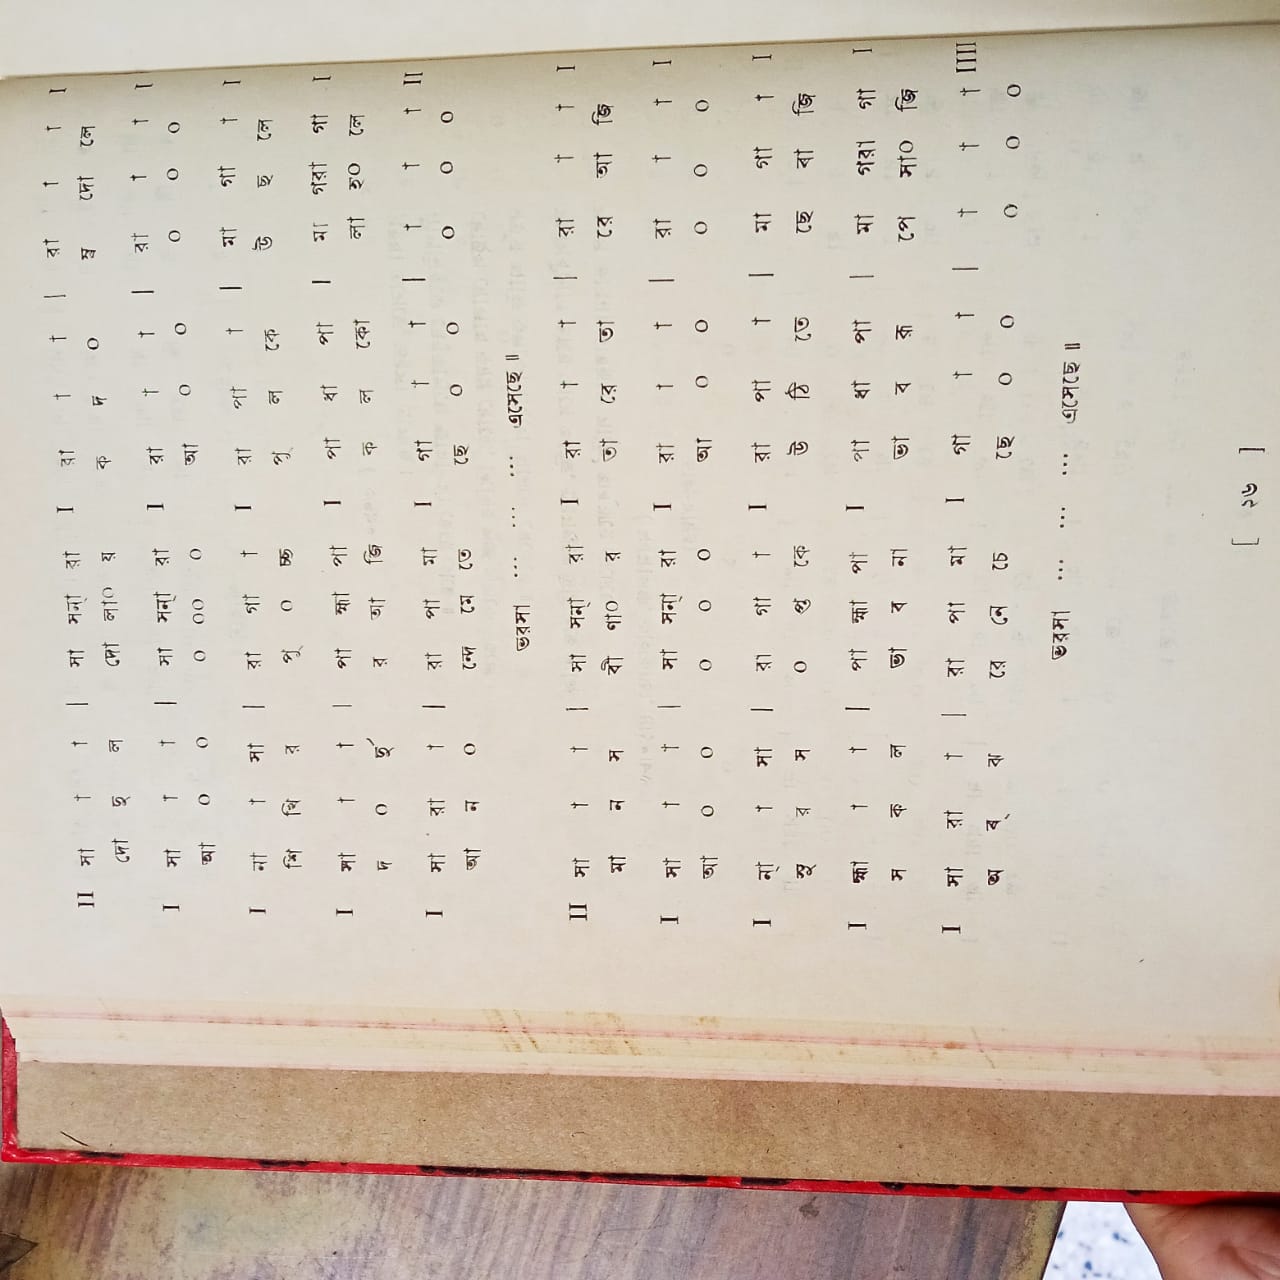 II সা া া | সা সন্‌া রা I রা া া | রা া া I
দো দু ল দো লা০ য় ক দ ০ ম্ব দো লে
I সা া া | সা সন্‌া রা I রা া া | রা া া I
আ ০ ০ ০ ০০ ০ আ ০ ০ ০ ০ ০
I না া সা | রা গা া I রা পা া | মা গা া I
শি খি র পু ০ চ্ছ পু ল কে উ ছ লে
I সা া া | পা হ্মা পা I পা ধা পা | মা গরা গা I
দ ০ র্দু র আ জি ক ল কো লা হ০ লে
I সা রা া | রা পা মা I গা া া | া া া II
আ ন ০ ন্দে মে তে ছে ০ ০ ০ ০ ০
ভরসা ... ... ... এসেছে॥
II সা া া | সা সন্‌া রা I রা া া | রা া া I
মা ন স বী ণা০ র তা রে তা রে আ জি
I সা া া | সা সন্‌া রা I রা া া | রা া া I
আ ০ ০ ০ ০ ০ আ ০ ০ ০ ০ ০
I ন্‌া া সা | রা গা া I রা পা া | মা গা া I
সু র স ০ প্ত কে উ ঠি তে ছে বা জি
I হ্মা া া | পা হ্মা পা I পা ধা পা | মা গরা গা I
স ক ল ভা ব না ভা ব রূ পে সা০ জি
I সা রা া | রা পা মা I গা া া | া া া IIII
অ ব্ ঝ রে নে চে ছে ০ ০ ০ ০ ০
ভরসা ... ... ... এসেছে॥
[ ২৬ ]